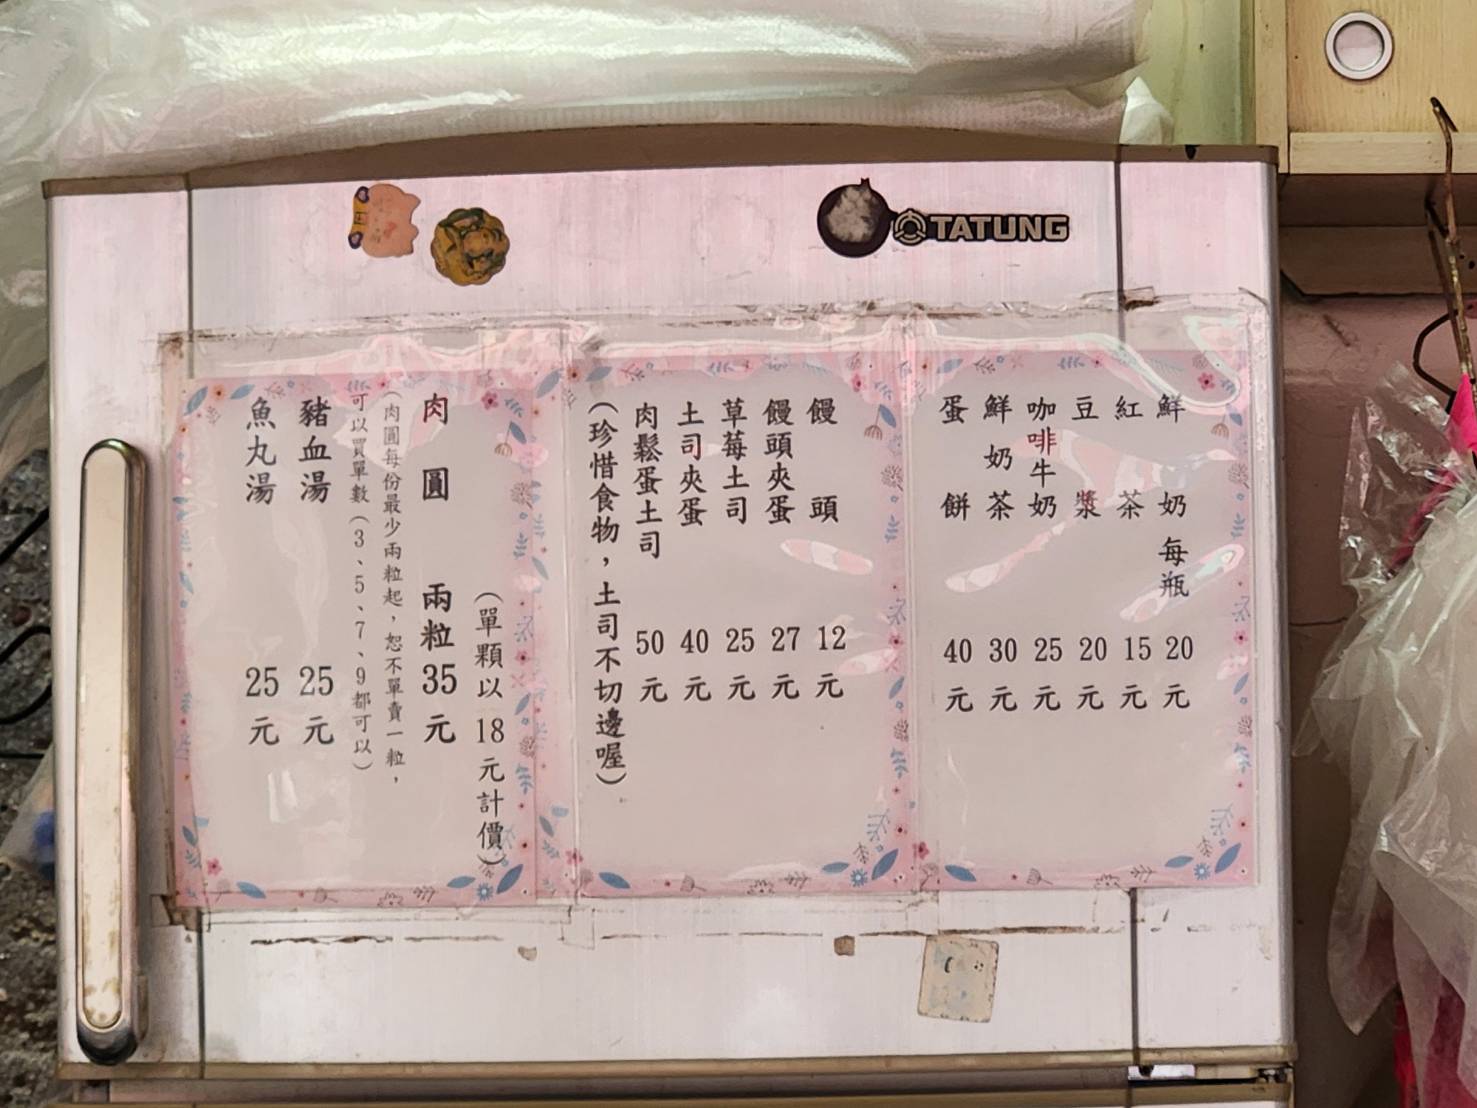 TATUNG
鮮奶每瓶20元
紅茶15元
豆漿20元
咖啡牛奶25元
鮮奶茶30元
蛋餅40元
饅頭12元
饅頭夾蛋27元
草莓土司25元
土司夾蛋40元
肉鬆蛋土司50元
（珍惜食物，土司不切邊喔）
（單顆以18元計價）
肉圓兩粒35元
（肉圓每份最少兩粒起，恕不單賣一粒，
可以買單數（3、5、7、9都可以）
豬血湯25元
魚丸湯25元